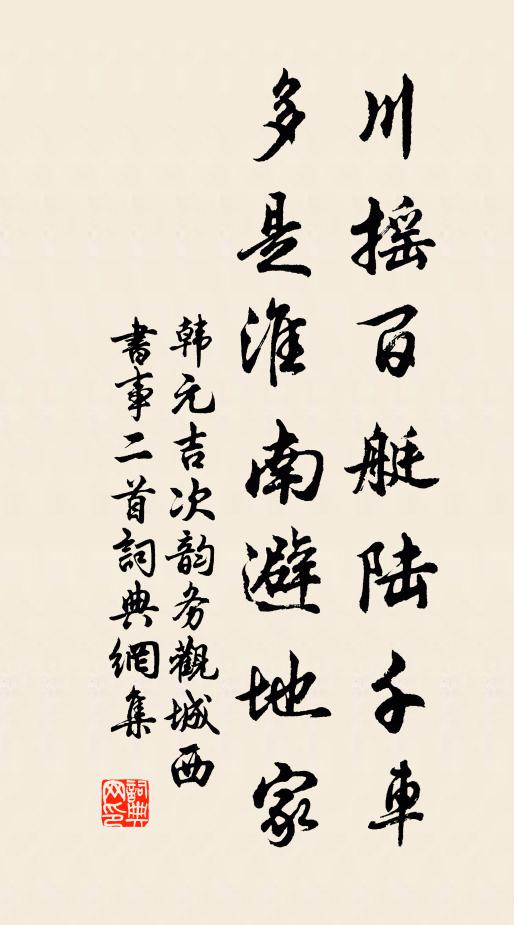 川摇百艇陆千車
多是淮南避地家
韩元吉次韵务觀城西
書事二首詞典網集
詞典
网印